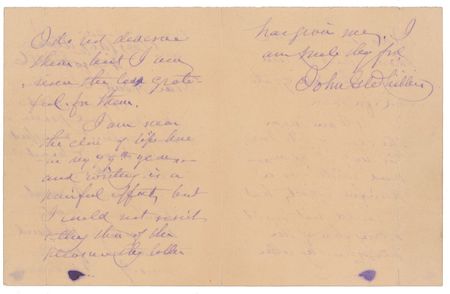 I do not deserve
them but I am
none the less grate-
ful for them.
I am near
the close of life
in my
and writing is a
painful effort, but
I could not resist
the
pleasure thy letter
has given me. I
am truly thy frd
John G Whittier